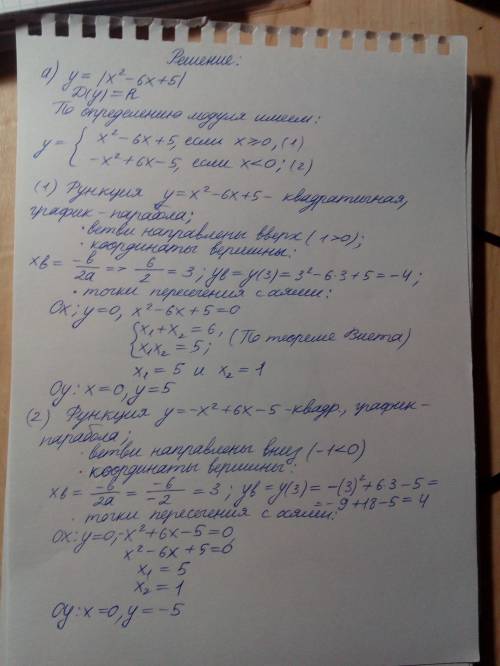 Решение:
а) y = |x² - 6x + 5|
D(y) = R
По определению модуля имеем:
y = { x² - 6x + 5, если x ≥ 0, (1)
-x² + 6x - 5, если x < 0; (2)
(1) Функция y = x² - 6x + 5 - квадратичная,
график - парабола;
· ветви направлены вверх (1 > 0);
· координаты вершины:
xв = -b/2a => 6/2 = 3; yв = y(3) = 3² - 6·3 + 5 = -4;
· точки пересечения с осями:
Ox: y = 0, x² - 6x + 5 = 0
{ x₁ + x₂ = 6,
x₁x₂ = 5; (По теореме Виета)
x₁ = 5 и x₂ = 1
Oy: x = 0, y = 5
(2) Функция y = -x² + 6x - 5 - квадр., график -
парабола;
· ветви направлены вниз (-1 < 0)
· координаты вершины:
xв = -b/2a = -6/-2 = 3; yв = y(3) = -(3)² + 6·3 - 5 =
= -9 + 18 - 5 = 4
· точки пересечения с осями:
Ox: y = 0, -x² + 6x - 5 = 0,
x² - 6x + 5 = 0
x₁ = 5
x₂ = 1
Oy: x = 0, y = -5